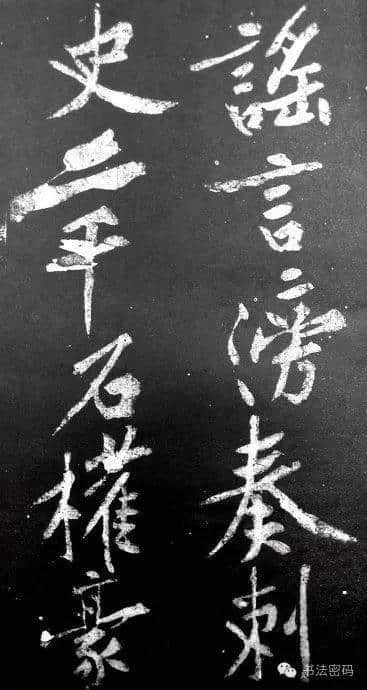 謠言滂奏刺
史二千石權豪
书法密码